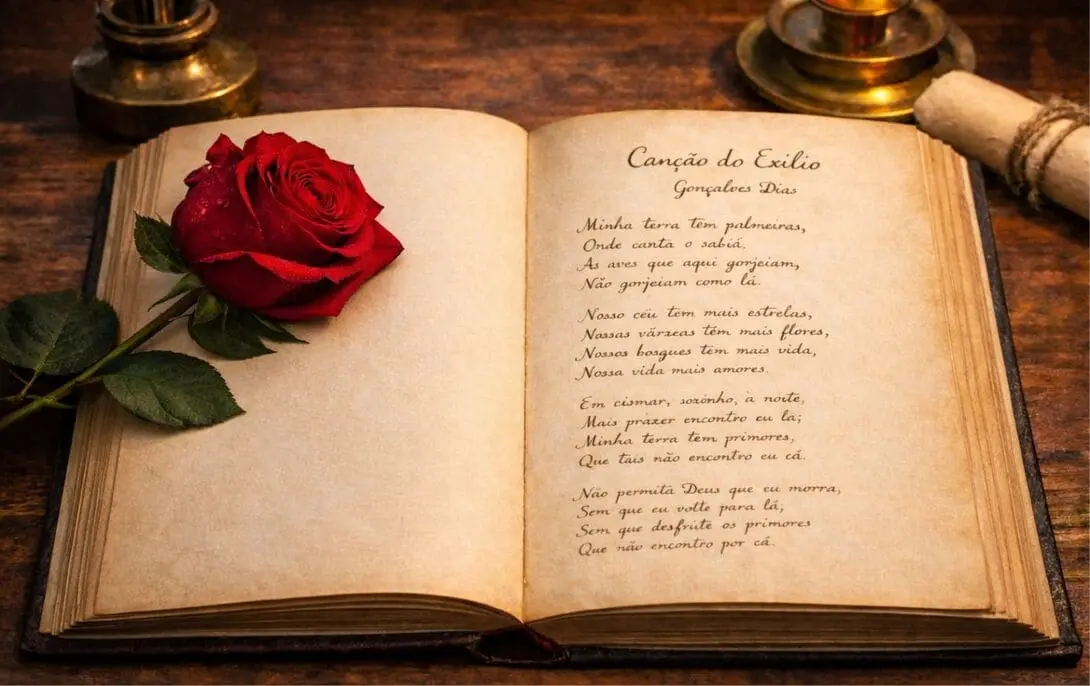 Canção do Exilio
Gonçalves Dias
Minha terra tem palmeiras,
Onde canta o sabiá.
As aves que aqui gorjeiam,
Não gorjeiam como lá.
Nosso céu tem mais estrelas,
Nossas várzeas têm mais flores,
Nossos bosgues tem mais vida,
Nossa vida mais amores.
Em cismar, sozinho, à noite,
Mais prazer encontro eu lá;
Minha terra tem primores,
Que tais não encontro eu cá.
Não permita Deus que eu morra,
Sem que eu volte para lá,
Sem que desfrute os primores
Que não encontro por cá.